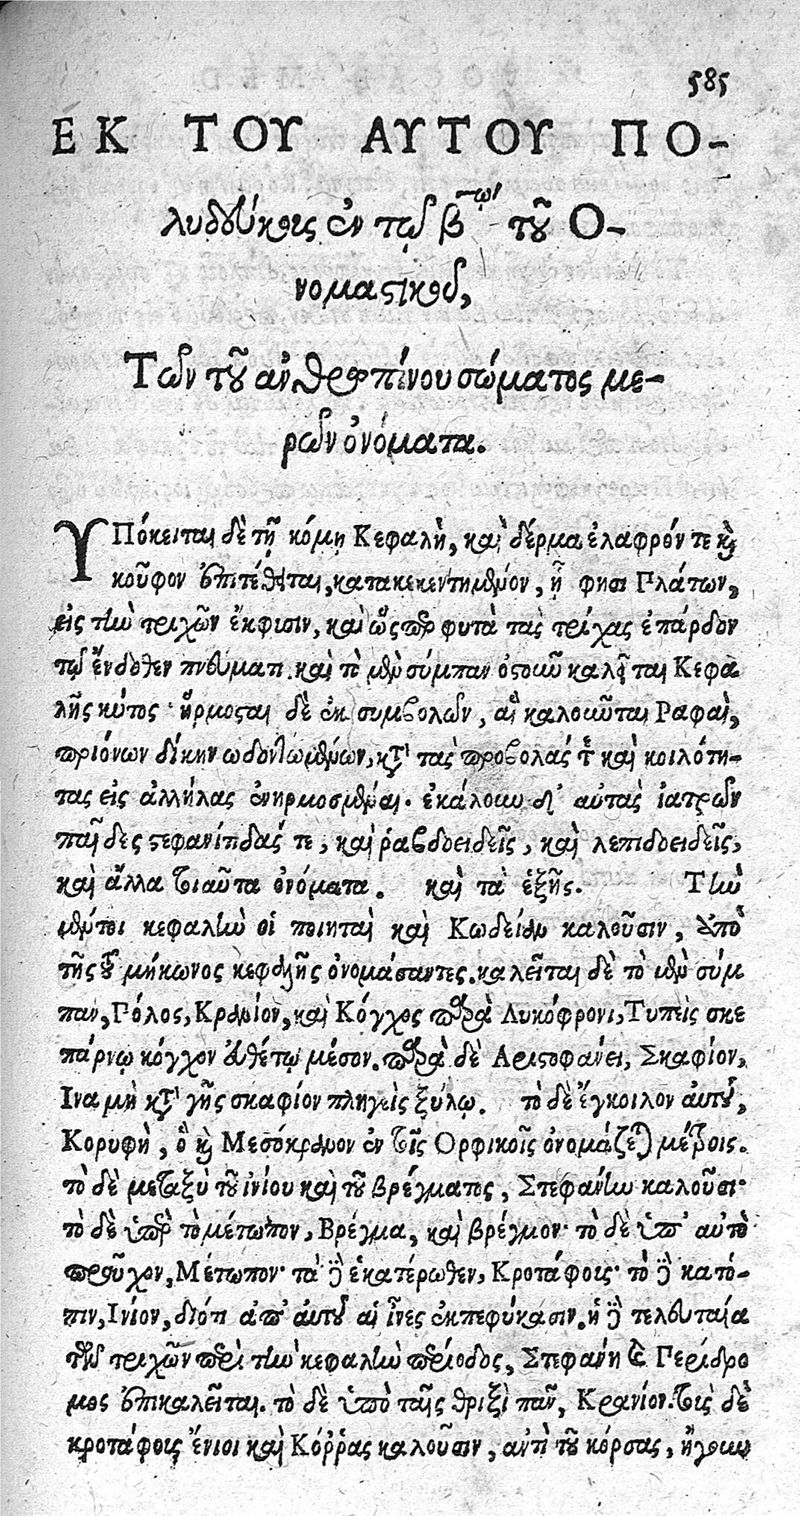 585
ΕΚ ΤΟΥ ΑΥΤΟΥ ΠΟ-
λυδεύκους ἐν τῷ βʹ τῷ τοῦ Ὀ-
νομαστικοῦ,
Τῶν τοῦ ἀνθρωπίνου σώματος με-
ρῶν ὀνόματα.
ΥΠόκειται δὲ τῇ κόμῃ Κεφαλὴ, καὶ δέρμα ἐλαφρόν τε καὶ
κοῦφον ἐπιτέθειται, κατακεκεντημένον, ᾗ φησι Πλάτων,
εἰς τὴν τριχῶν ἔκφισιν, καὶ ὥσπερ φυτὰ τὰς τρίχας ἐπάρδον
τῷ ἔνδοθεν πνεύματι. καὶ τὸ μὲν σύμπαν ὀστοῦν καλεῖται Κεφα
λῆς κύτος· ἥρμοσται δὲ ἐκ συμβολῶν, αἳ καλοῦνται Ῥαφαὶ,
πριόνων δίκην ὠδοντωμένων, κατὰ τὰς προβολάς τε καὶ κοιλότη-
τας εἰς ἀλλήλας ἐνηρμοσμέναι. ἐκάλουν δ' αὐτὰς ἰατρῶν
παῖδες στεφανίτιδάς τε, καὶ ῥαβδοειδεῖς, καὶ λεπιδοειδεῖς,
καὶ ἄλλα τοιαῦτα ὀνόματα. καὶ τὰ ἑξῆς. Τὴν
μέντοι κεφαλὴν οἱ ποιηταὶ καὶ Κωδείαν καλοῦσιν, ἀπὸ
τῆς τοῦ μήκωνος κεφαλῆς ὀνομάσαντες. καλεῖται δὲ τὸ μὲν σύμ
παν, Πόλος, Κρανίον, καὶ Κόγχος παρὰ Λυκόφρονι, Τυπεὶς σκε
πάρνῳ κόγχον ἀθέτῳ μέσον. παρὰ δὲ Ἀριστοφάνει, Σκαφίον,
Ἵνα μὴ κατὰ γῆς σκαφίον πληγεὶς ξύλῳ. τὸ δὲ ἔγκοιλον αὐτοῦ,
Κορυφὴ, ὃ καὶ Μεσόκρανον ἐν τοῖς Ὀρφικοῖς ὀνομάζεται μέτροις.
τὸ δὲ μεταξὺ τοῦ ἰνίου καὶ τοῦ βρέγματος, Στεφάνην καλοῦσι·
τὸ δὲ ὑπὲρ τὸ μέτωπον, Βρέγμα, καὶ βρέγμον· τὸ δὲ ὑπ' αὐτὸ
προῦχον, Μέτωπον· τὰ δὲ ἑκατέρωθεν, Κροτάφοις· τὸ δὲ κατό-
πιν, Ἰνίον, διότι ἀπ' αὐτοῦ αἱ ἶνες ἐκπεφύκασιν. ἡ δὲ τελευταία
τῶν τριχῶν περὶ τὴν κεφαλὴν περίοδος, Στεφάνη καὶ Περίδρο
μος ἐπικαλεῖται. τὸ δὲ ὑπὸ ταῖς θριξὶ πᾶν, Κρανίον. τοῖς δὲ
κροτάφοις ἔνιοι καὶ Κόῤῥας καλοῦσιν, ἀντὶ τοῦ κόρσας, ἤγουν